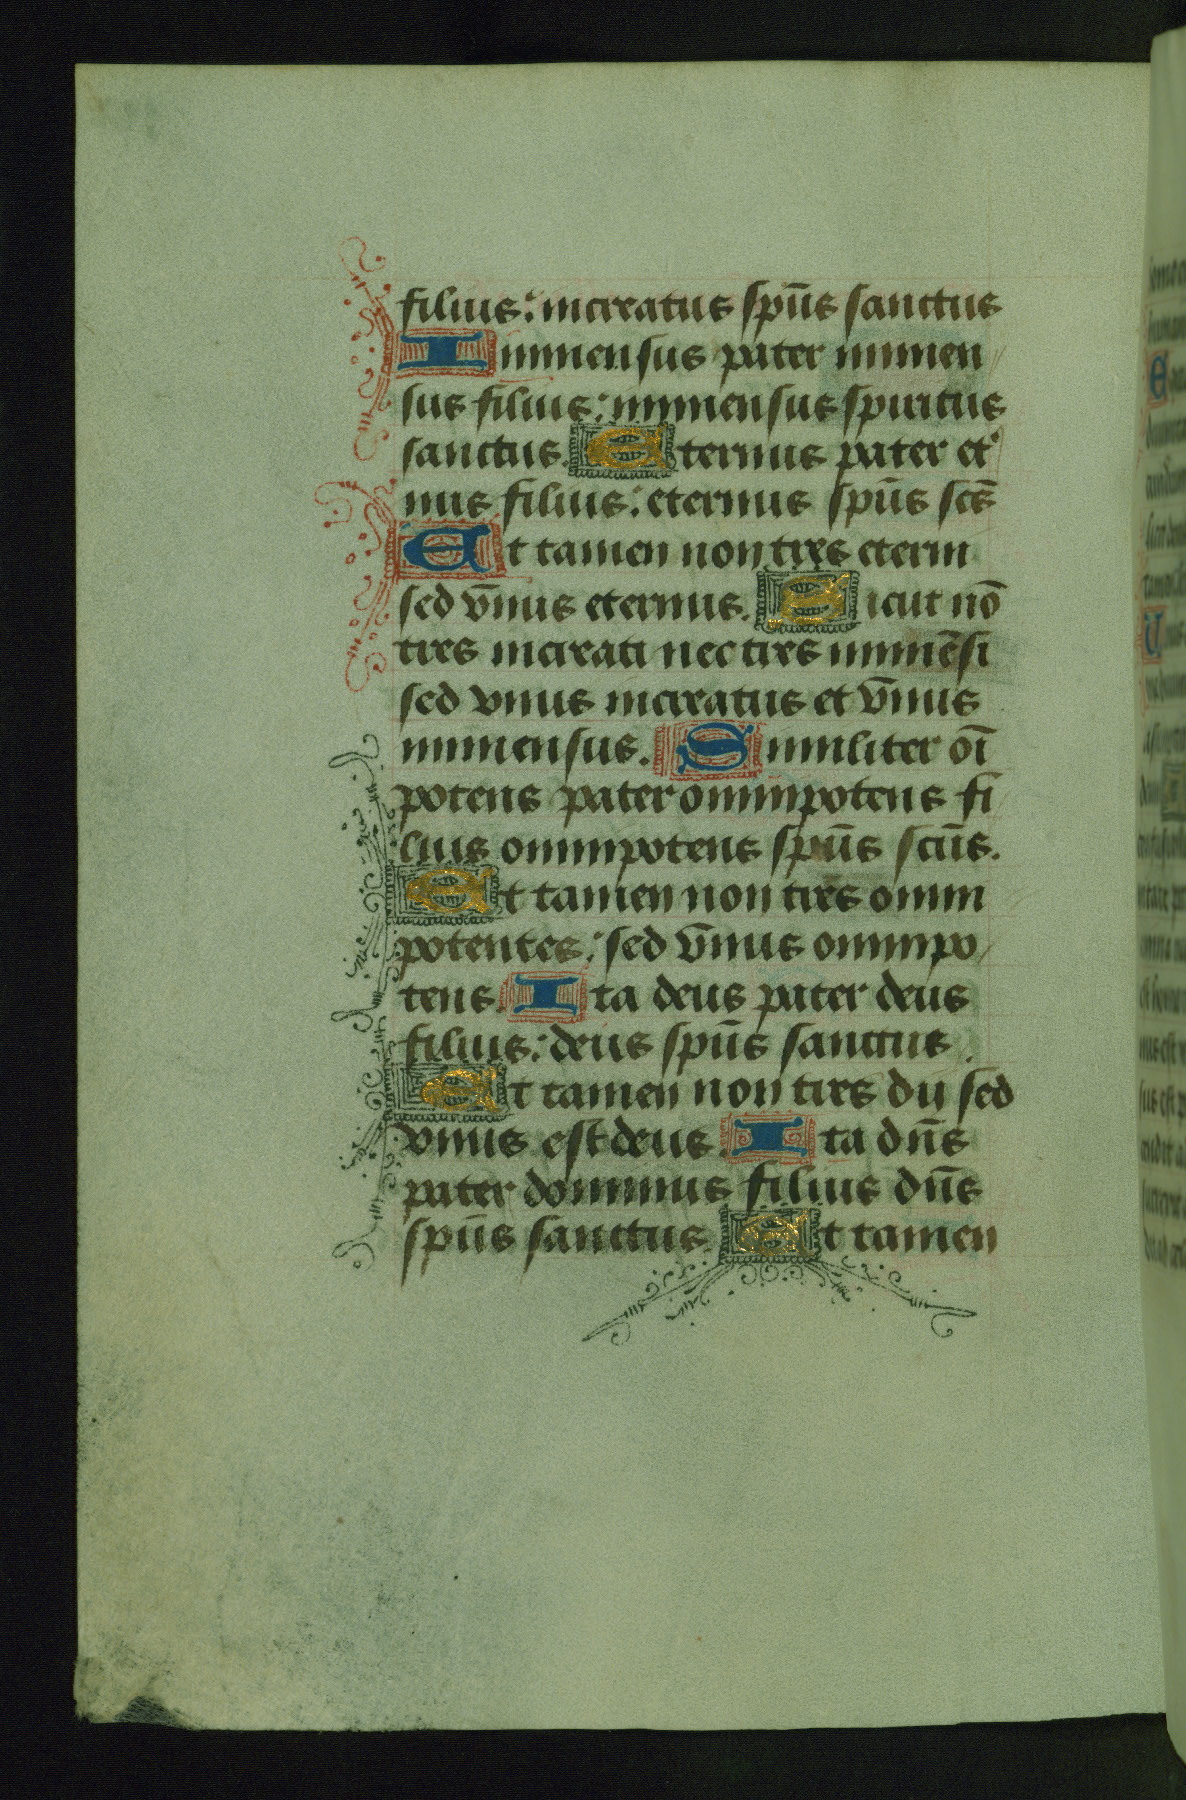 filius: increatus spūs sanctus
Inmensus pater inmen
sus filius: inmensus spiritus
sanctus. Eternus pater et'
nus filius: eternus spūs scs̄
Et tamen non tres eterni
sed vn̄us eternus. Sicut nō
tres increati nec tres inmēsi
sed vnus increatus et vn̄us
inmensus. Similiter oī
potens pater omnipotens fi
lius omnipotens spūs scūs.
Et tamen non tres omni
potentes: sed vn̄us omnipo
tens. Ita deus pater deus
filius: deus spūs sanctus.
Et tamen non tres dii sed
vnus est deus. Ita dn̄s
pater dominus filius dn̄s
spūs sanctus. Et tamen